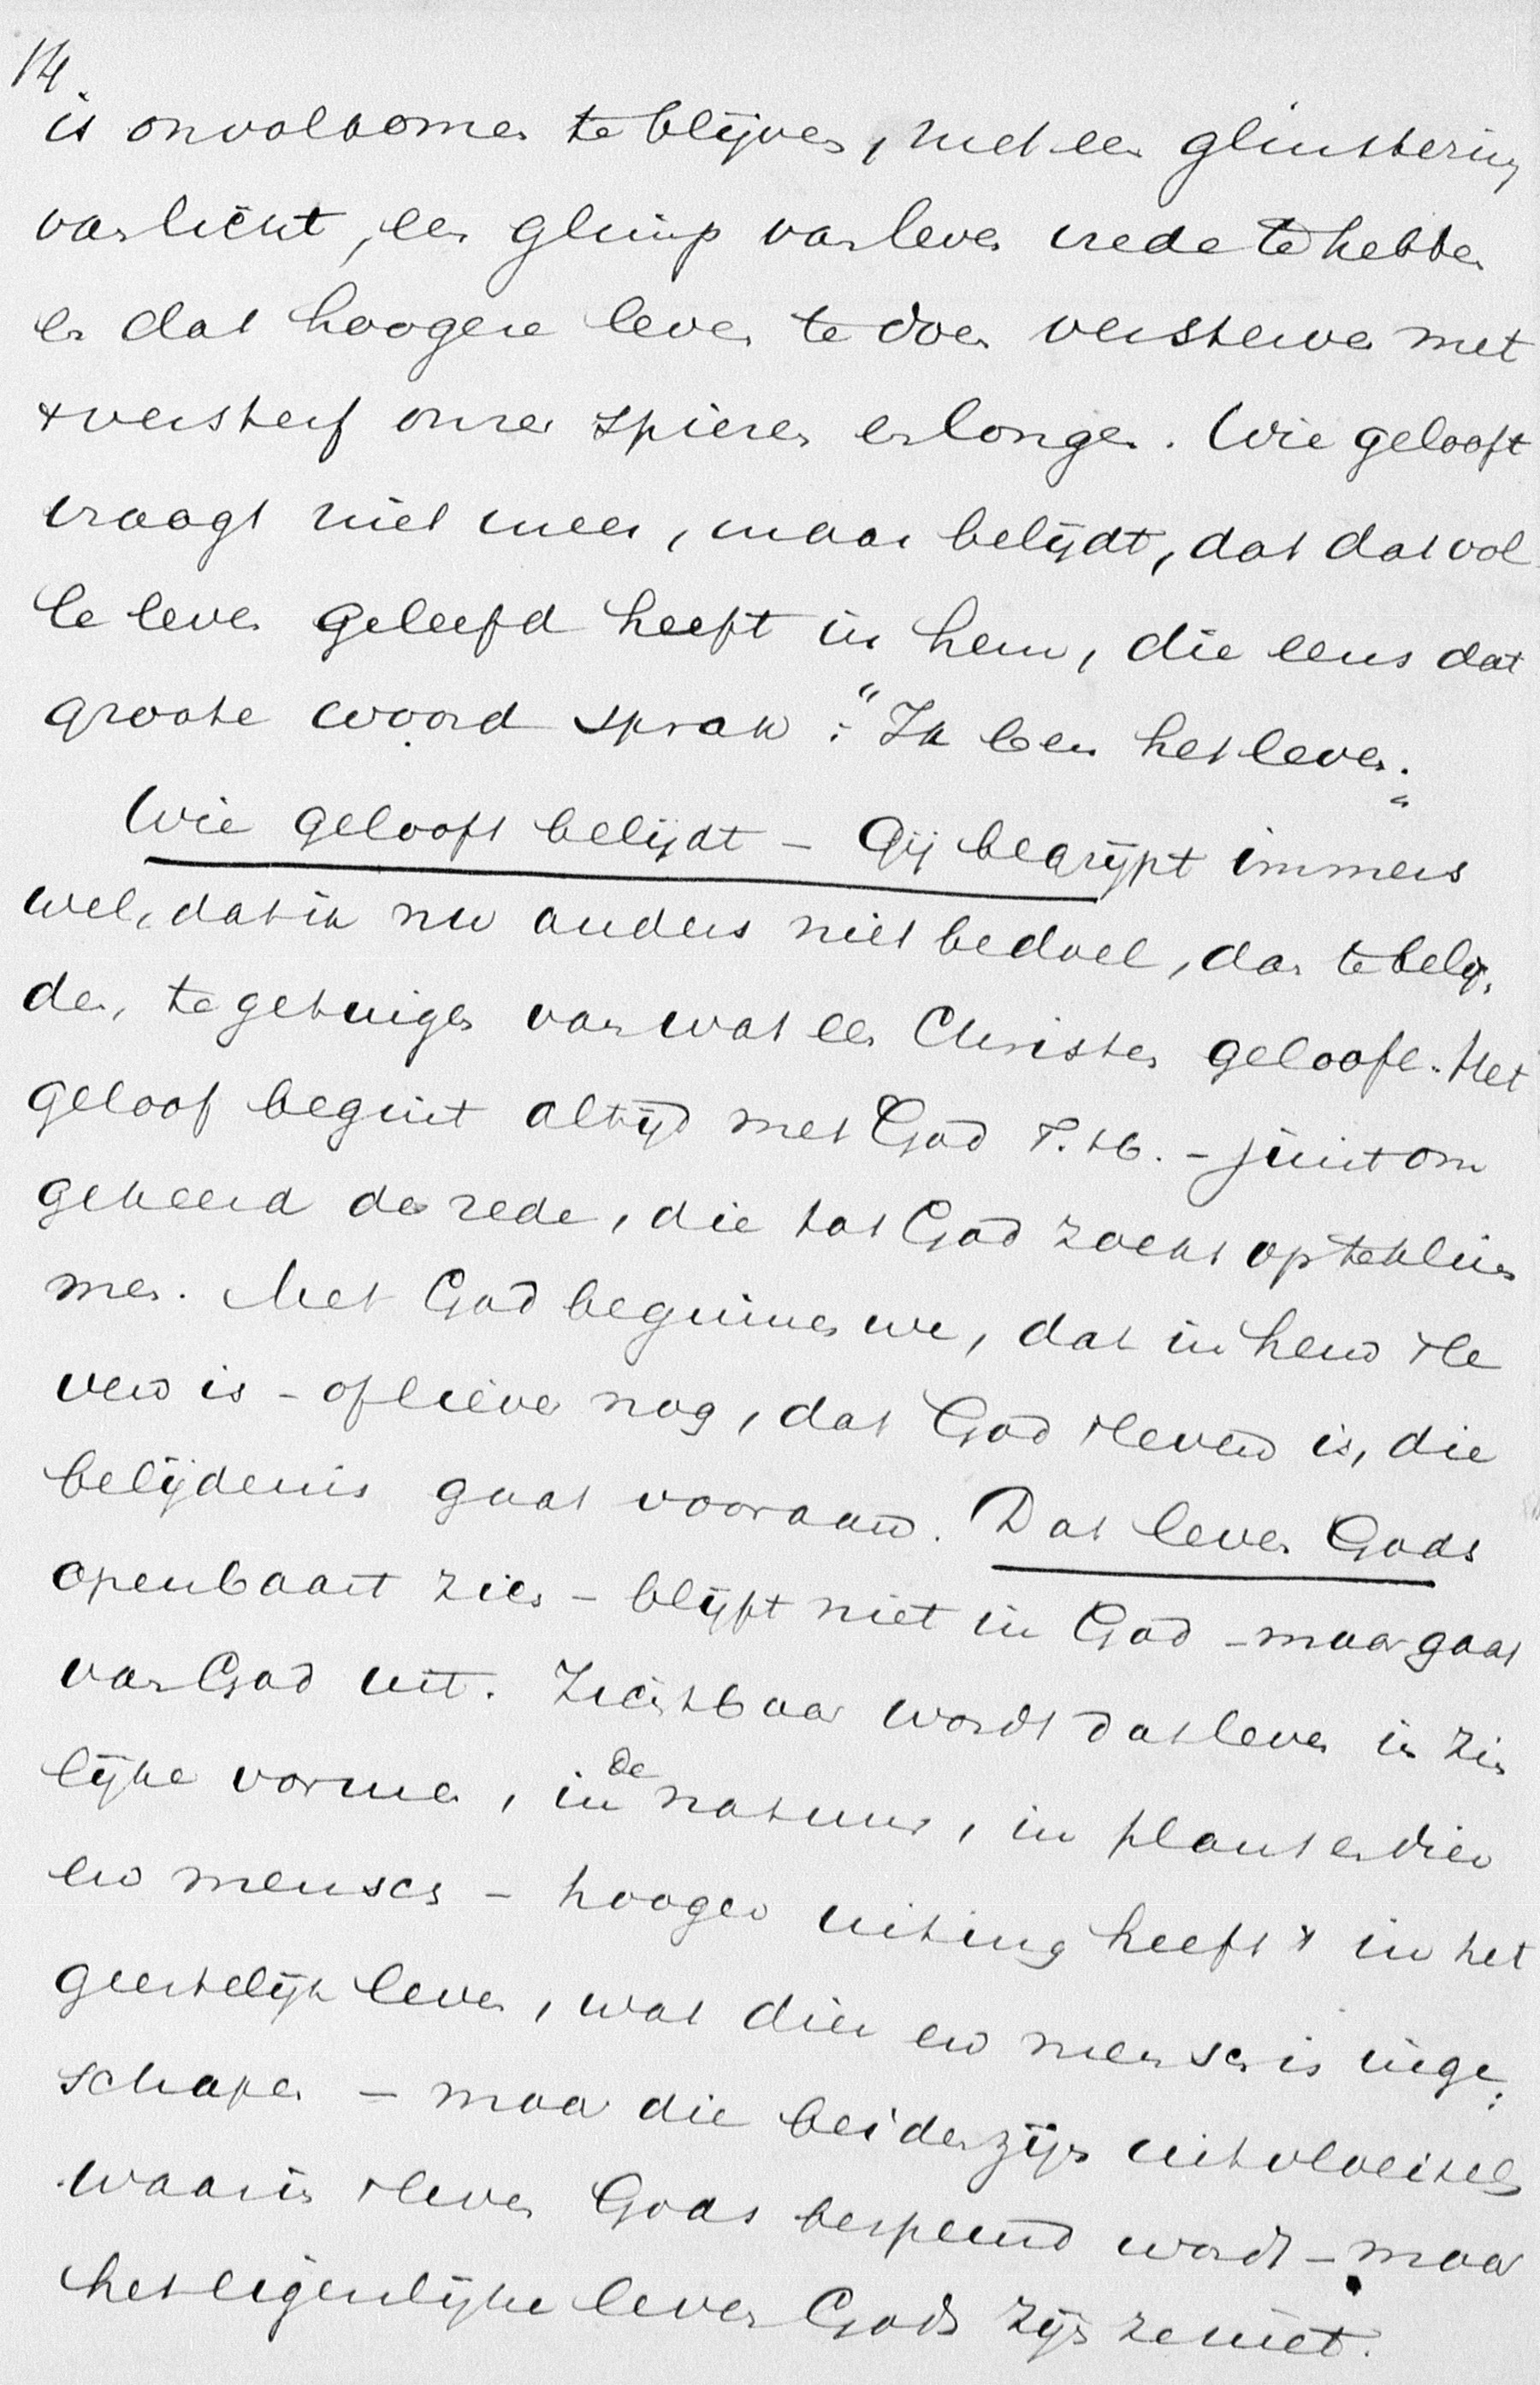 14.
is onvolkomen te blijven, met een glinstering
van licht, een glimp van leven vrede te hebben
en dat hoogere leven te doen versterven met
't versterf onzer spieren en longen. Wie gelooft
vraagt niet meer, maar belijdt, dat dat vol-
le leven geleefd heeft in hem, die eens dat
groote woord sprak: "Ik ben het leven."
Wie gelooft belijdt - Gij begrijpt immers
wel, dat ik nu anders niet bedoel, dan te belij-
den, te getuigen van wat een Christen geloofe. Het
geloof begint altijd met God T.H. - juist om
gekeerd de rede, die tot God zoekt op te klim
men. Met God beginnen we, dat in hem 't le
ven is - of liever nog, dat God 't leven is, die
belijdenis gaat vooraan. Dat leven Gods
openbaart zich - blijft niet in God - maar gaat
van God uit. Zichtbaar wordt dat leven in zin
lijke vormen, in de natuur, in plant en dier
en mensch - hooger uiting heeft 't in het
geestelijk leven, wat dier en mensch is inge-
schapen - maar die beiden zijn uitvloeisels
waarin 't leven Gods bespeurd wordt - maar
het eigenlijke leven Gods zijn ze niet.